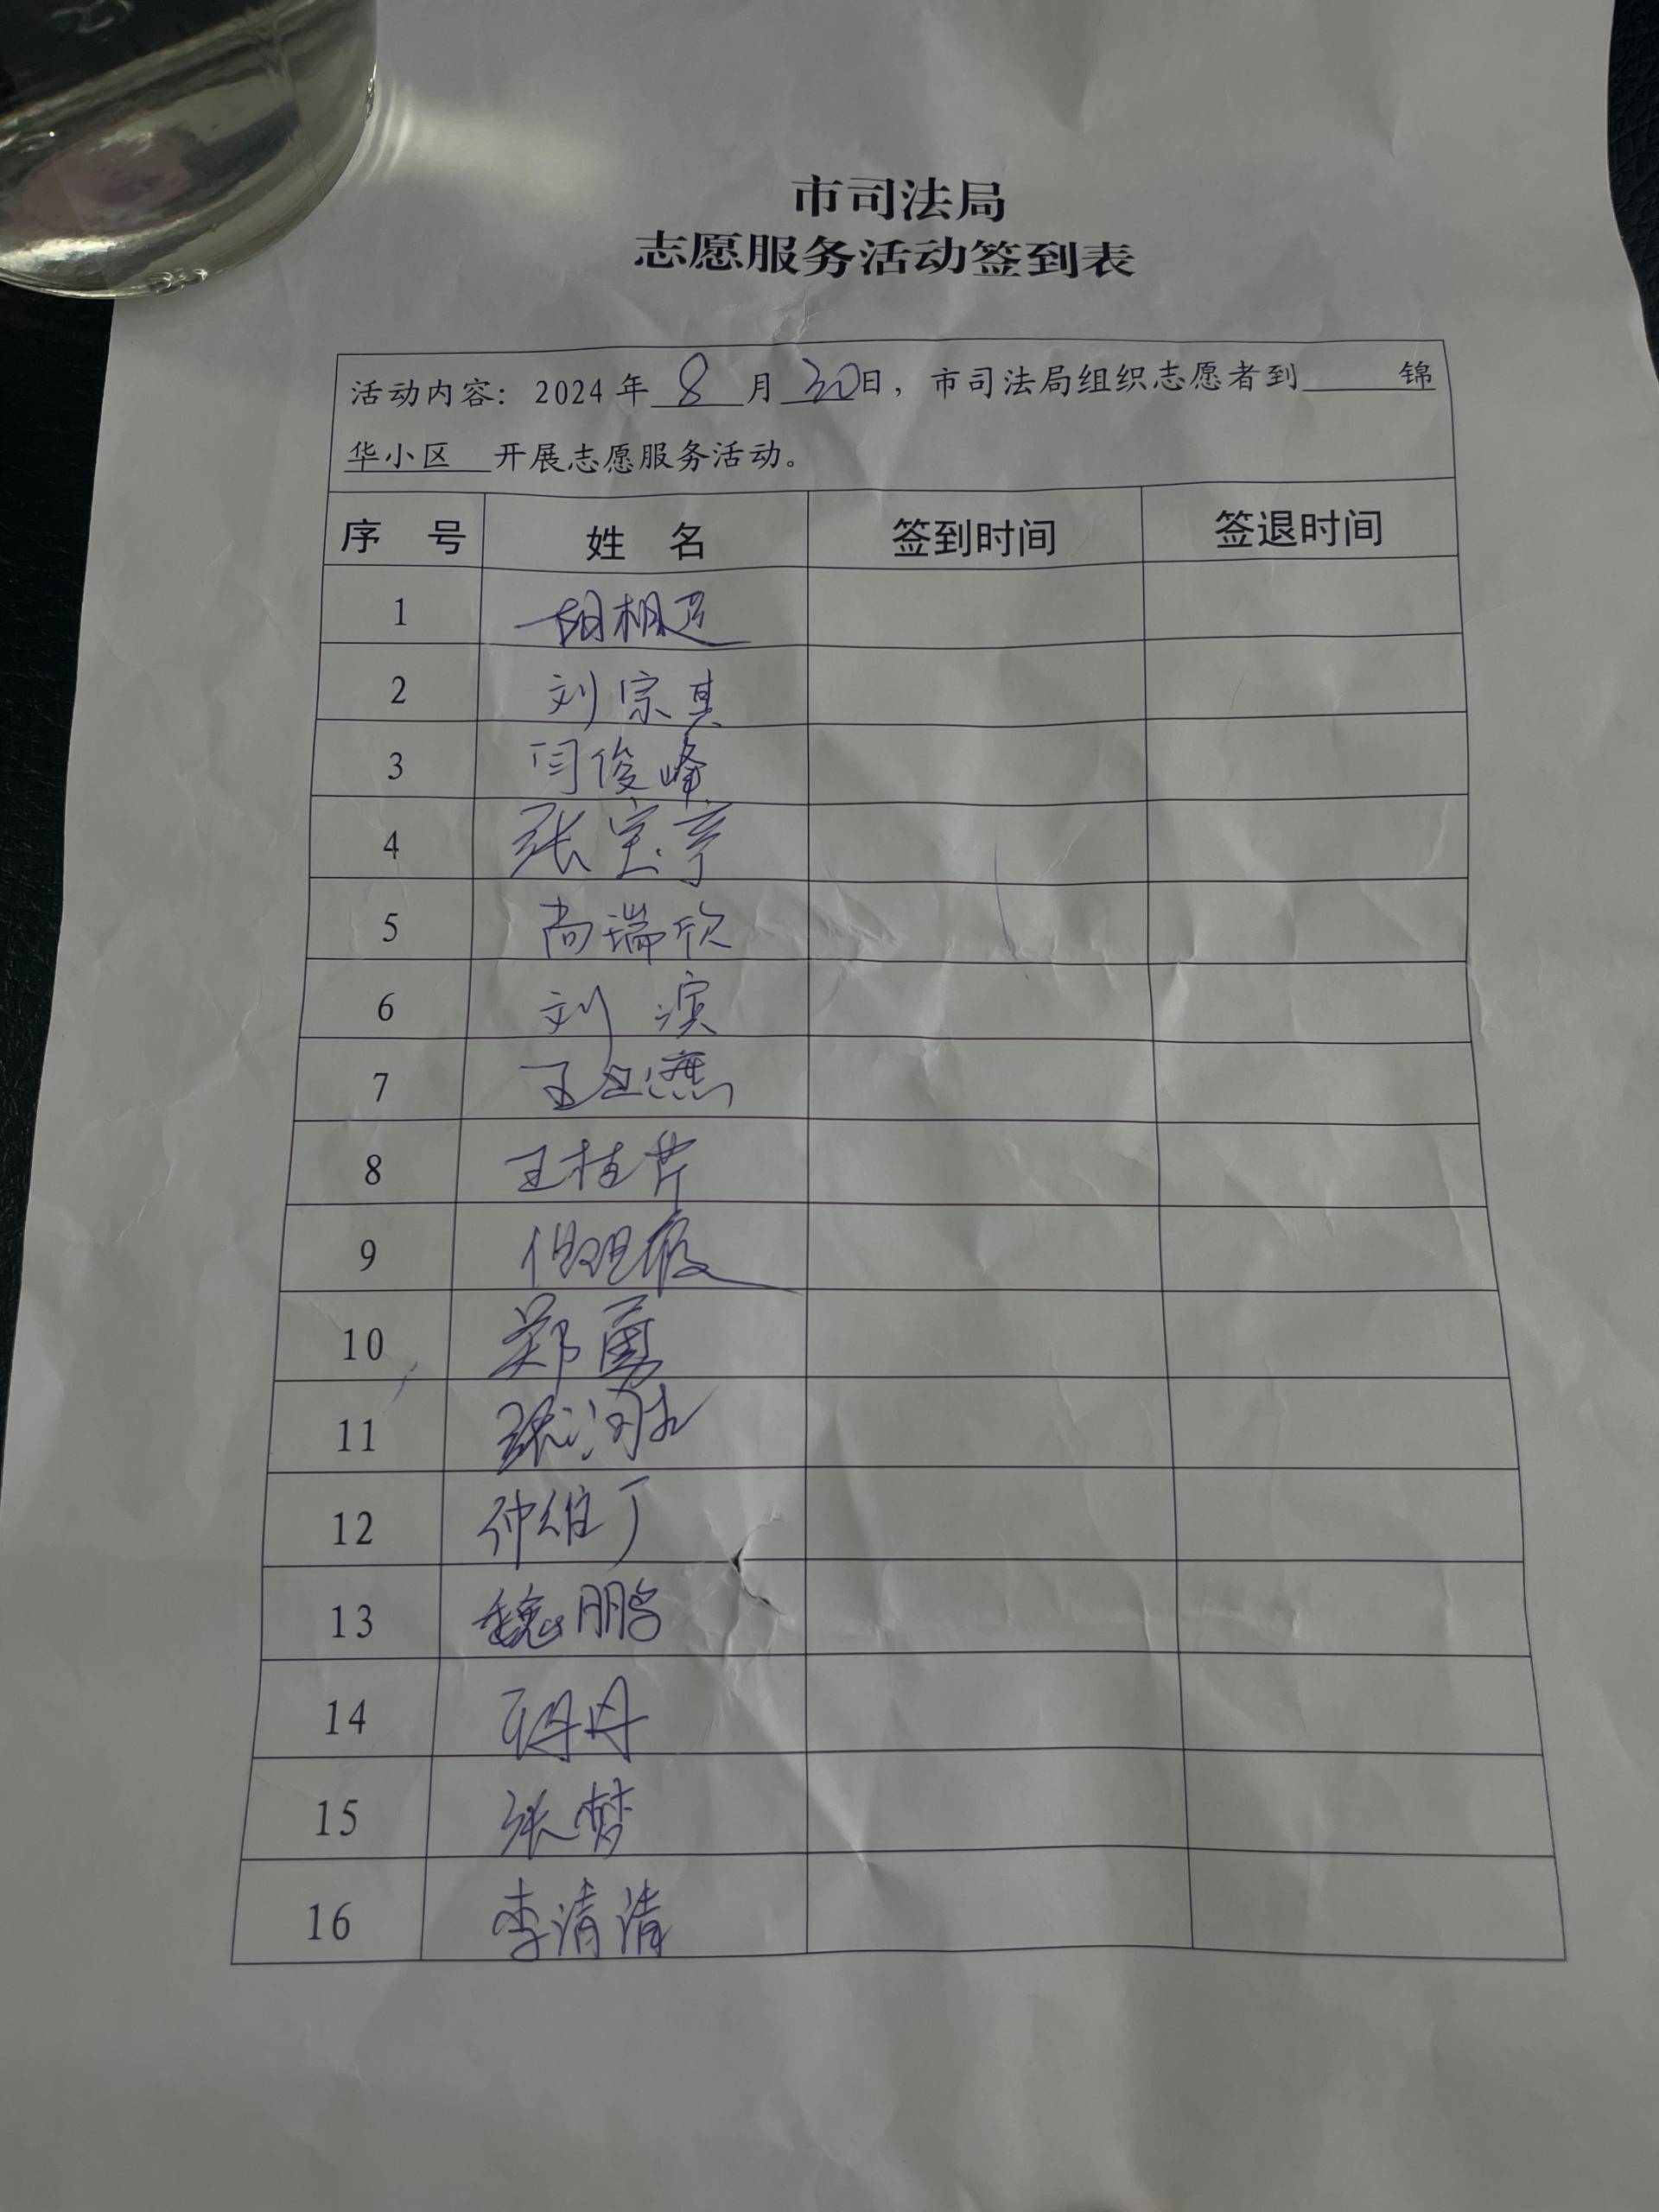 市司法局
志愿服务活动签到表
活动内容：2024年 8 月 30日，市司法局组织志愿者到 锦
华小区 开展志愿服务活动。
序 号 姓 名 签到时间 签退时间
1 胡相
2 刘宗其
3 闫俊峰
4 张宝亭
5 尚瑞欣
6 刘 滨
7 王
8 王桂芹
9
10 郑勇
11 张
12 仲维丁
13 魏鹏
14 丹
15 张梦
16 李清清